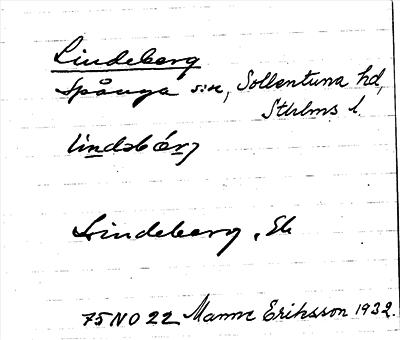 Lindeberg
Spånga sn, Sollentuna hd,
Sthlms l.
lindsbärj
Lindeberg, Ek
75 NO 22 Manne Eriksson 1932.